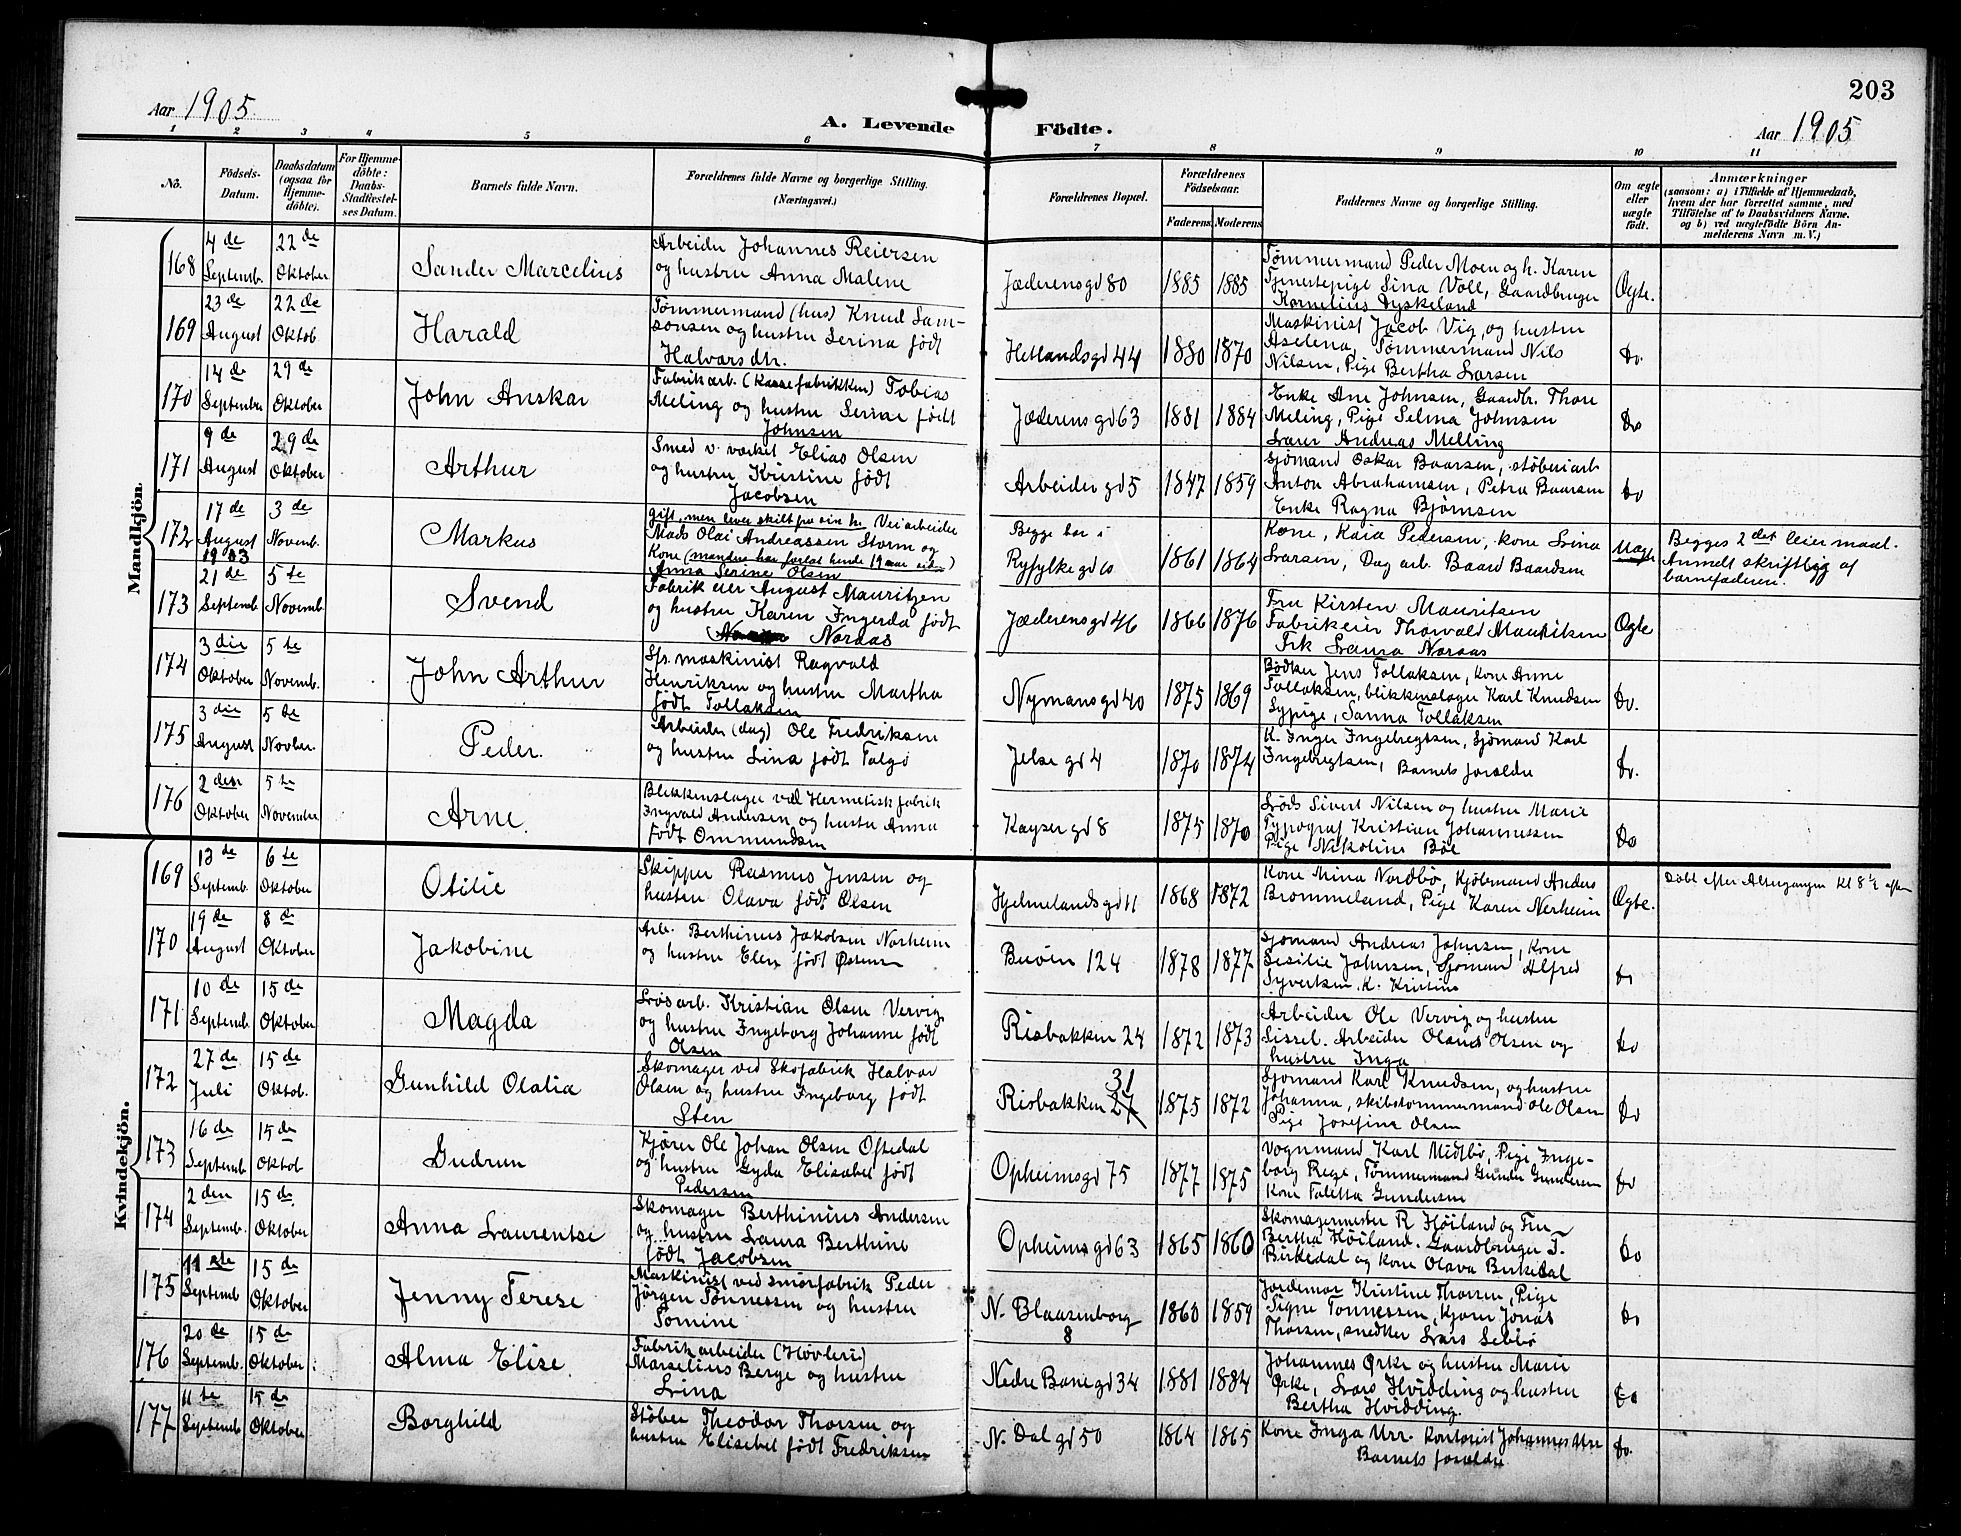 203
Aar 1905.
A. Levende Födte.
Aar 1905
1 2 3 4 5 6 7 8 9 10 11
No.
Födsels-Datum.
Daabsdatum (ogsaa for Hjemme-döbte).
For Hjemme-döbte: Daabs-Stadfæstel-ses Datum.
Barnets fulde Navn.
Forældrenes fulde Navne og borgerlige Stilling. (Næringsvei.)
Forældrenes Bopæl.
Forældrenes Födselsaar.
Faderens. Moderens.
Faddernes Navne og borgerlige Stilling.
Om ægte eller uægte födt.
Anmærkninger
(saasom: a) i Tilfælde af Hjemmedaab, hvem der har forrettet samme, med Tilföielse af to Daabsvidners Navne. og b) ved uægtefödte Börn An-melderens Navn m. V.)
Mandkjön.
168 4de Septemb. 22de Oktober
Sander Marcelius
Arbeider Johannes Reiersen
og hustru Anna Malene
Jæderensgd 80 1885 1885
Tømmermand Peder Moen og h. Karen
Tjenestepige Sina Voll, Gaardbruger
Kornelius Dyskeland
Ægte.
169 23de August 22de Oktob.
Harald
Tømmermand (hus) Knud Sam-
sonsen og hustru Serina født
Halvorsdtr.
Hetlandsgd 44 1880 1870
Maskinist Jacob Vig, og hustru
Aselena, Tømmermand Nils
Nilsen, Pige Bertha Larsen
Do.
170 14de September 29de Oktober
John Anskar
Fabrikarb. (Kassefabrikken) Tobias
Meling og hustru Serine født
Johnsen
Jæderensgd 63 1881 1884
Enke Ane Johnsen, Gaardbr. Thore
Meling, Pige Selma Johnsen
Lærer Andreas Melling
Do
171 9de August 29de Oktober
Arthur
Smed v. værket Elias Olsen
og hustru Kristine født
Jacobsen
Arbeidergd 5 1847 1859
Sjømand Oskar Baarsen, støberiarb
Anton Abrahamsen, Petra Baarsen
Enke Ragna Bjørnsen
Do
172 17de August 1903 3de Novemb.
Markus
gift, men lever skilt fra sin h. Veiarbeider
Mads Olai Andreassen Storm og
Kone (manden har forlat hende 19 aar siden)
Anna Serine Olsen
Begge bor i
Ryfylkegd 10 1861 1864
Kone, Kaia Pedersen, kone Lina
Larsen, Dag arb. Baard Baardsen
Uægte
Begges 2det leiermaal.
Anmelt skriftlig af
barnefaderen.
173 21de Septemb. 5te Novemb.
Svend
Fabrikeier August Mauritzen
og hustru Karen Ingerda født
Noraas
Jæderensgd 46 1866 1876
Fru Kirsten Mauritsen
Fabrikeier Thorvald Mauritzen
Frk Laura Noraas
Ægte
174 3die Oktober 5te Novemb.
John Arthur
Lfs. maskinist Ragvald
Henriksen og hustru Martha
født Tollaksen
Nymansgd 40 1875 1869
Bødker Jens Tollaksen, kone Anne
Tollaksen, blikkenslager Karl Knudsen
Sypige, Sanna Tollaksen
Do.
175 3die August 5te Novber.
Peder.
Arbeider (dag) Ole Fredriksen
og hustru Lina født Talgø
Jelsegd 4 1870 1874
K. Inger Ingebregtsen, Sjømand Karl
Ingebregtsen, Barnets forældre
Do.
176 2den Oktober 5te November
Arne.
Blikkenslager ved Hermetiskfabrik
Ingvald Andersen og hustru Anna
født Ommundsen
Kaysergd 8 1875 1870
Lods Sivert Nilsen og hustru Marie
Typograf Kristian Johannessen
Pige Nikoline Bøe
Do
Kvindekjön.
169 13de Septemb. 6te Oktober
Otilie
Skipper Rasmus Jensen og
hustru Olava født Olsen
Hjelmelandsgd 11 1868 1872
Kone Mina Nordbø, Kjøbmand Anders
Brommeland, Pige Karen Nerheim
Ægte.
Døbt efter Altergangen Kl 8½ efter
170 19de August 8de Oktober
Jakobine
Arb. Berthinus Jakobsen Norheim
og hustru Elen født Østensen
Buøen 124 1878 1877
Sjømand Andreas Johnsen, Kone
Sesilie Johnsen, Sjømand Alfred
Syvertsen, K. Kristine
Do
171 10de Septemb. 15de Oktober
Magda
Løsarb. Kristian Olsen Vervig
og hustru Ingeborg Johanne født
Olsen
Risbakken 24 1872 1873
Arbeider Ole Vervig og hustru
Sissel. Arbeider Olaus Olsen og
hustru Inga
Do
172 27de Juli 15de Oktob.
Gunhild Olalia
Skomager ved Skofabrik Halvor
Olsen og hustru Ingeborg født
Sten
Risbakken 27 31 1875 1872
Sjømand Karl Knudsen, og hustru
Johanna, skibstømmermand Ole Olsen
Pige Josefine Olsen
Do
173 16de Septemb. 15de Oktob.
Gudrun
Kjører Ole Johan Olsen Oftedal
og hustru Gyda Elisabet født
Pedersen
Opheimsgd 75 1877 1875
Vognmand Karl Midtbø, Pige Inge-
borg Rege, Tømmermand Gunder Gundersen
Kone Taletta Gundersen
Do
174 2den Septemb. 15de Oktober
Anna Laurentse
Skomager Berthinius Andersen
og hustru Laura Berthine
født Jacobsen
Opheimsgd 63 1865 1860
Skomagermester R Höiland og Fru
Bertha Höiland. Gaardbruger T.
Birkedal og kone Olava Birkedal
Do
175 11te Septemb 15de Oktober
Jenny Terese
Maskinist ved smørfabrik Peder
Jørgen Tönnessen og hustru
Tomine
N. Blaasenborg 8 1860 1859
Jordemor Kristine Thorsen, Pige
Signe Tönnessen, Kjører Jonas
Thorsen, snedker Lars Sebbø
Do
176 20de Septemb. 15de Oktober
Alma Elise.
Fabrikarbeider (Høvleri)
Marselius Berge og hustru
Lina
Nedre Banegd 34 1881 1884
Johannes Ørke og hustru Marie
Ørke, Lars Hvidding og hustru
Bertha Hvidding.
Do
177 11te Septemb 15de Oktober
Borghild
Støber Theodor Thorsen og
hustru Elisebet født Fredriksen
N. Dalgd 50 1864 1865
Kone Inga Urr. Kontorist Johannes Urr
Barnets forældre
Do.